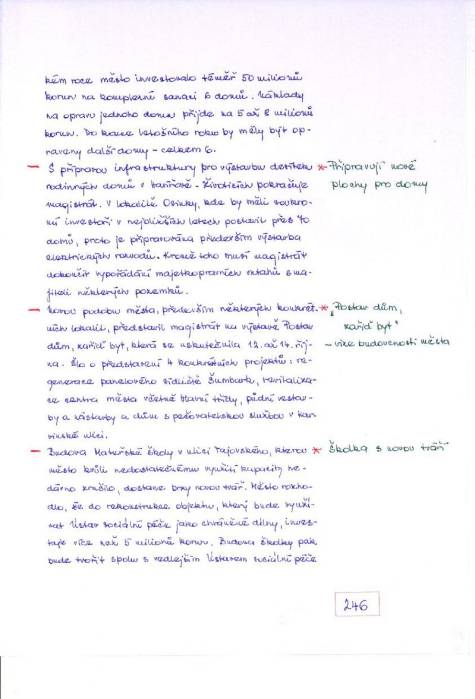 kém roce město investovalo téměř 50 milionů
korun na komplexní sanaci 6 domů. Náklady
na opravu jednoho domu přijde na 5 až 8 milionů
korun. Do konce letošního roku by měly být op-
raveny další domy - celkem 6.
- S přípravou infrastruktury pro výstavbu desítek * Připravují nové
rodinných domů v Havířově - Životicích pokračuje plochy pro domy
magistrát. V lokalitě Osinky, kde by měli soukro-
mí investoři v nejbližších letech postavit přes 40
domů, proto je připravována především výstavba
elektrických rozvodů. Kromě toho musí magistrát
dokončit vypořádání majetkoprávních vztahů s ma-
jiteli některých pozemků.
- Novou podobu města, především některých konkrét- * „Postav dům,
ních lokalit, představil magistrát na výstavě Postav zařiď byt"
dům, zařiď byt, která se uskutečnila 12. až 14. říj- - vize budoucnosti města
na. Šlo o představení 4 konkrétních projektů: re-
generace panelového sídliště Šumbark, revitaliza-
ce centra města včetně Hlavní třídy, půdní vestav-
by a výstavby a dům s pečovatelskou službou v Kar-
vinské ulici.
- Budova Mateřské školy v ulici Tajovského, kterou * Školka s novou tváří
město kvůli nedostatečnému využití kapacity ne-
dávno zrušilo, dostane brzy novou tvář. Město rozho-
dlo, že do rekonstrukce objektu, který bude využí-
vat Ústav sociální péče jako chráněné dílny, inves-
tuje více než 5 milionů korun. Budova školky pak
bude tvořit spolu s vedlejším Ústavem sociální péče
246